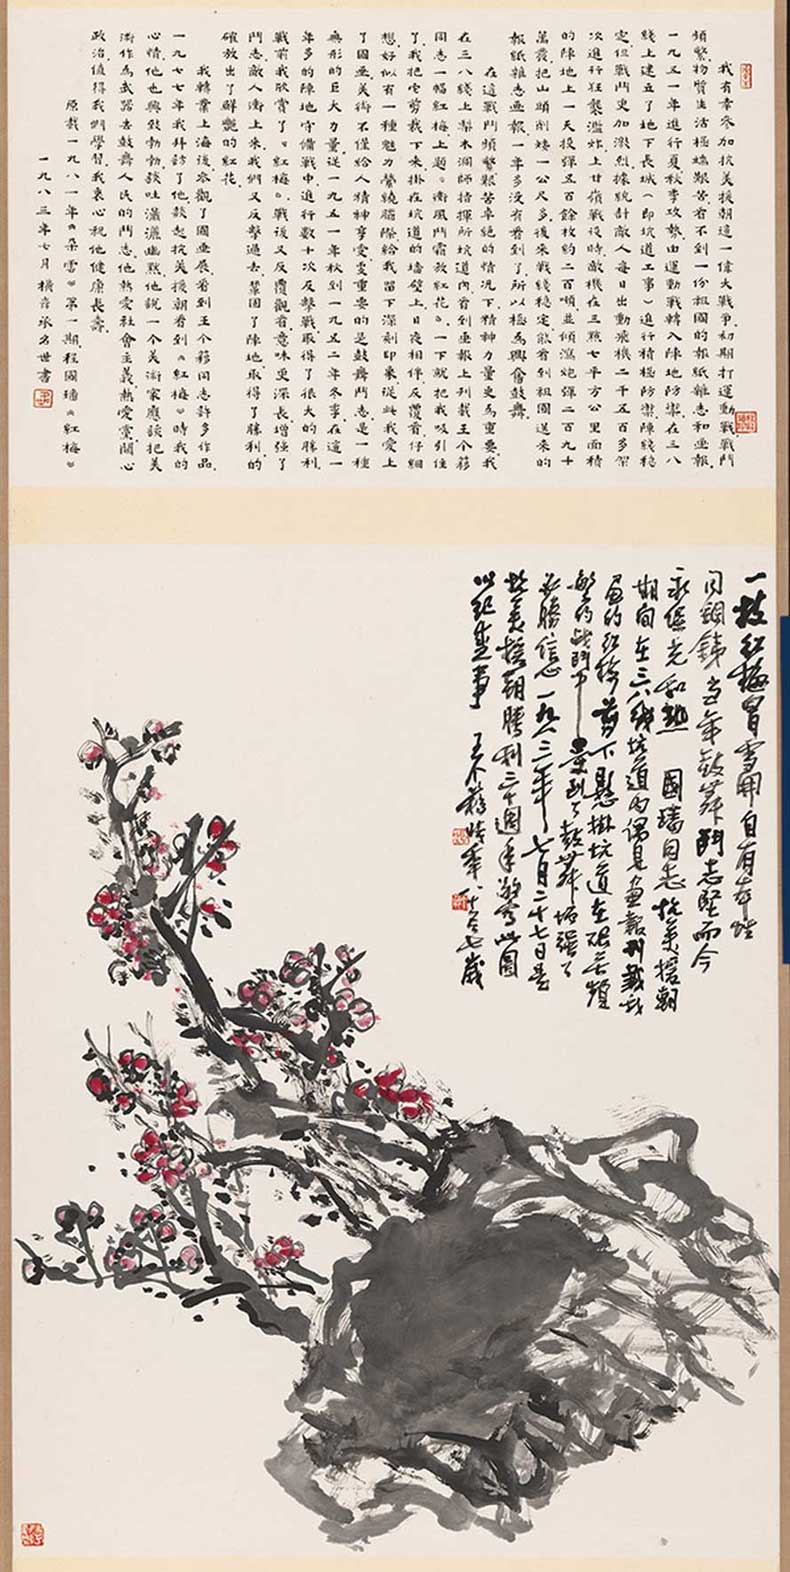 我有幸參加抗美援朝這一偉大戰爭初期打運動戰戰鬥
頻繁物質生活極端艱苦看不到一份祖國的報紙雜志和画報
一九五一年進行夏秋季攻勢由運動戰轉入陣地防禦在三八
綫上建立了地下長城（即坑道工事）進行積極防禦陣綫穩
定但戰鬥更加激烈據統計敵人每日出動飛機二千五百多架
次進行狂襲濫炸上甘嶺戰役時敵機在三點七平方公里面積
的陣地上一天投彈五百餘枚約二百噸並傾瀉炮彈二百九十
萬發把山頭削矮一公尺多後來戰綫穩定能看到祖國送來的
報紙雜志画報一年多没有看到了所以極為興奮鼓舞
在這戰鬥頻繁艱苦卓絶的情况下精神力量更為重要我
在三八綫上梨木洞師指揮所坑道内看到画報上刊載王个簃
同志一幅紅梅上題《衝風鬥霜放紅花》一下就把我吸引住
了我把它剪裁下来掛在坑道的墻壁上日夜相伴反覆看仔細
想好似有一種魅力縈繞腦際給我留下深刻印象從此我愛上
了國画美術不僅給人精神享受更重要的是鼓舞鬥志是一種
無形的巨大力量從一九五一年秋到一九五二年冬季在這一
年多的陣地守備戰中進行數十次反擊戰取得了很大的勝利
戰前我欣賞了《紅梅》戰後又反覆觀看意味更深長增强了
鬥志敵人衝上来我們又反擊過去鞏固了陣地取得了勝利的
確放出了鮮艷的紅花
我轉業上海後參觀了國画展看到王个簃同志許多作品
一九七七年我拜訪了他談起抗美援朝看到《紅梅》時我的
心情他也興致勃勃談吐瀟灑幽默他說一个美術家應該把美
術作為武器去鼓舞人民的鬥志他熱愛社會主義熱愛黨關心
政治值得我們學習我衷心祝他健康長壽
原載一九八一年《朵雲》第一期程國璠《紅梅》
一九八三年七月 橫音承名世書
一枝紅梅冒雪開自有
同鋼鐵当年鼓舞鬥志堅而今
永保光和熱 國璠同志抗美援朝
期间在三八綫坑道内偶見画報刊載我
画的紅梅剪下懸掛坑道在艰苦頻
繁的战鬥中受到了鼓舞增强了
必勝信心一九八三年七月二十七日是
抗美援朝勝利三十週年敬寫此圖
以纪盛事 王个簃時年八十七歲